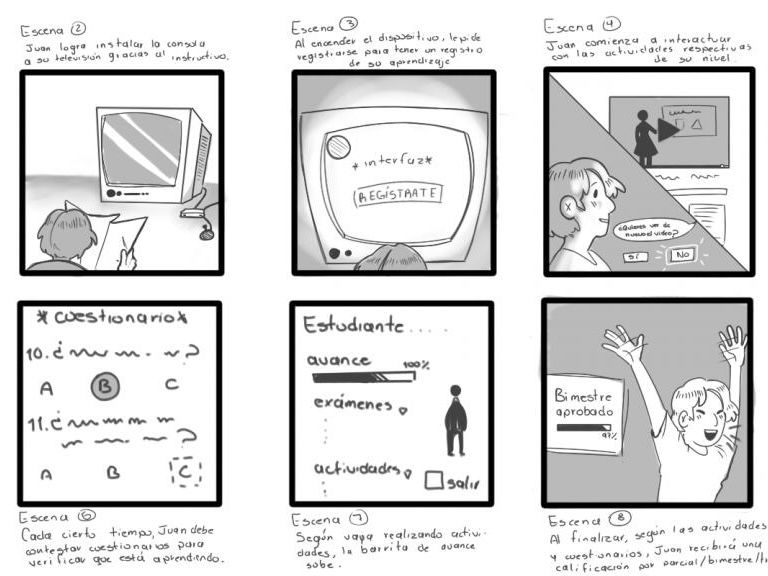 Escena ②
Juan logra instalar la consola
a su televisión gracias al instructivo.
Escena ③
Al encender el dispositivo, le pide
registrarse para tener un registro
de su aprendizaje
*interfaz*
REGÍSTRATE
Escena ④
Juan comienza a interactuar
con las actividades respectivas
de su nivel.
¿Quieres ver de
nuevo el video?
SÍ
NO
*cuestionario*
10. ¿
?
A
B
C
11. ¿
?
A
B
C
Escena ⑥
Cada cierto tiempo, Juan debe
contestar cuestionarios para
verificar que está aprendiendo.
Estudiante....
avance
100%
exámenes
actividades
salir
Escena ⑦
Según vaya realizando activi-
dades, la barrita de avance
sube.
Bimestre
aprobado
97%
Escena ⑧
Al finalizar, según las actividades
y cuestionarios, Juan recibirá una
calificación por parcial/bimestre/